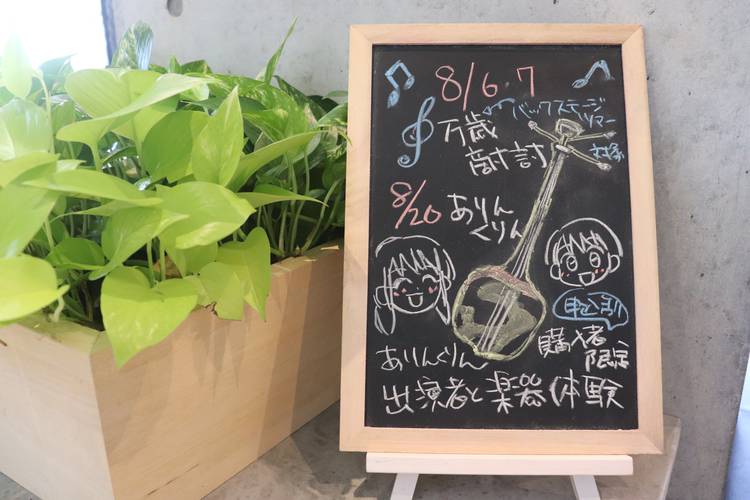 8/6.7
バックステージ
ツアー
対象
万歳
敵討
8/20
ありん
くりん
申込制
購入者
限定
ありんくりん
出演者と楽器体験